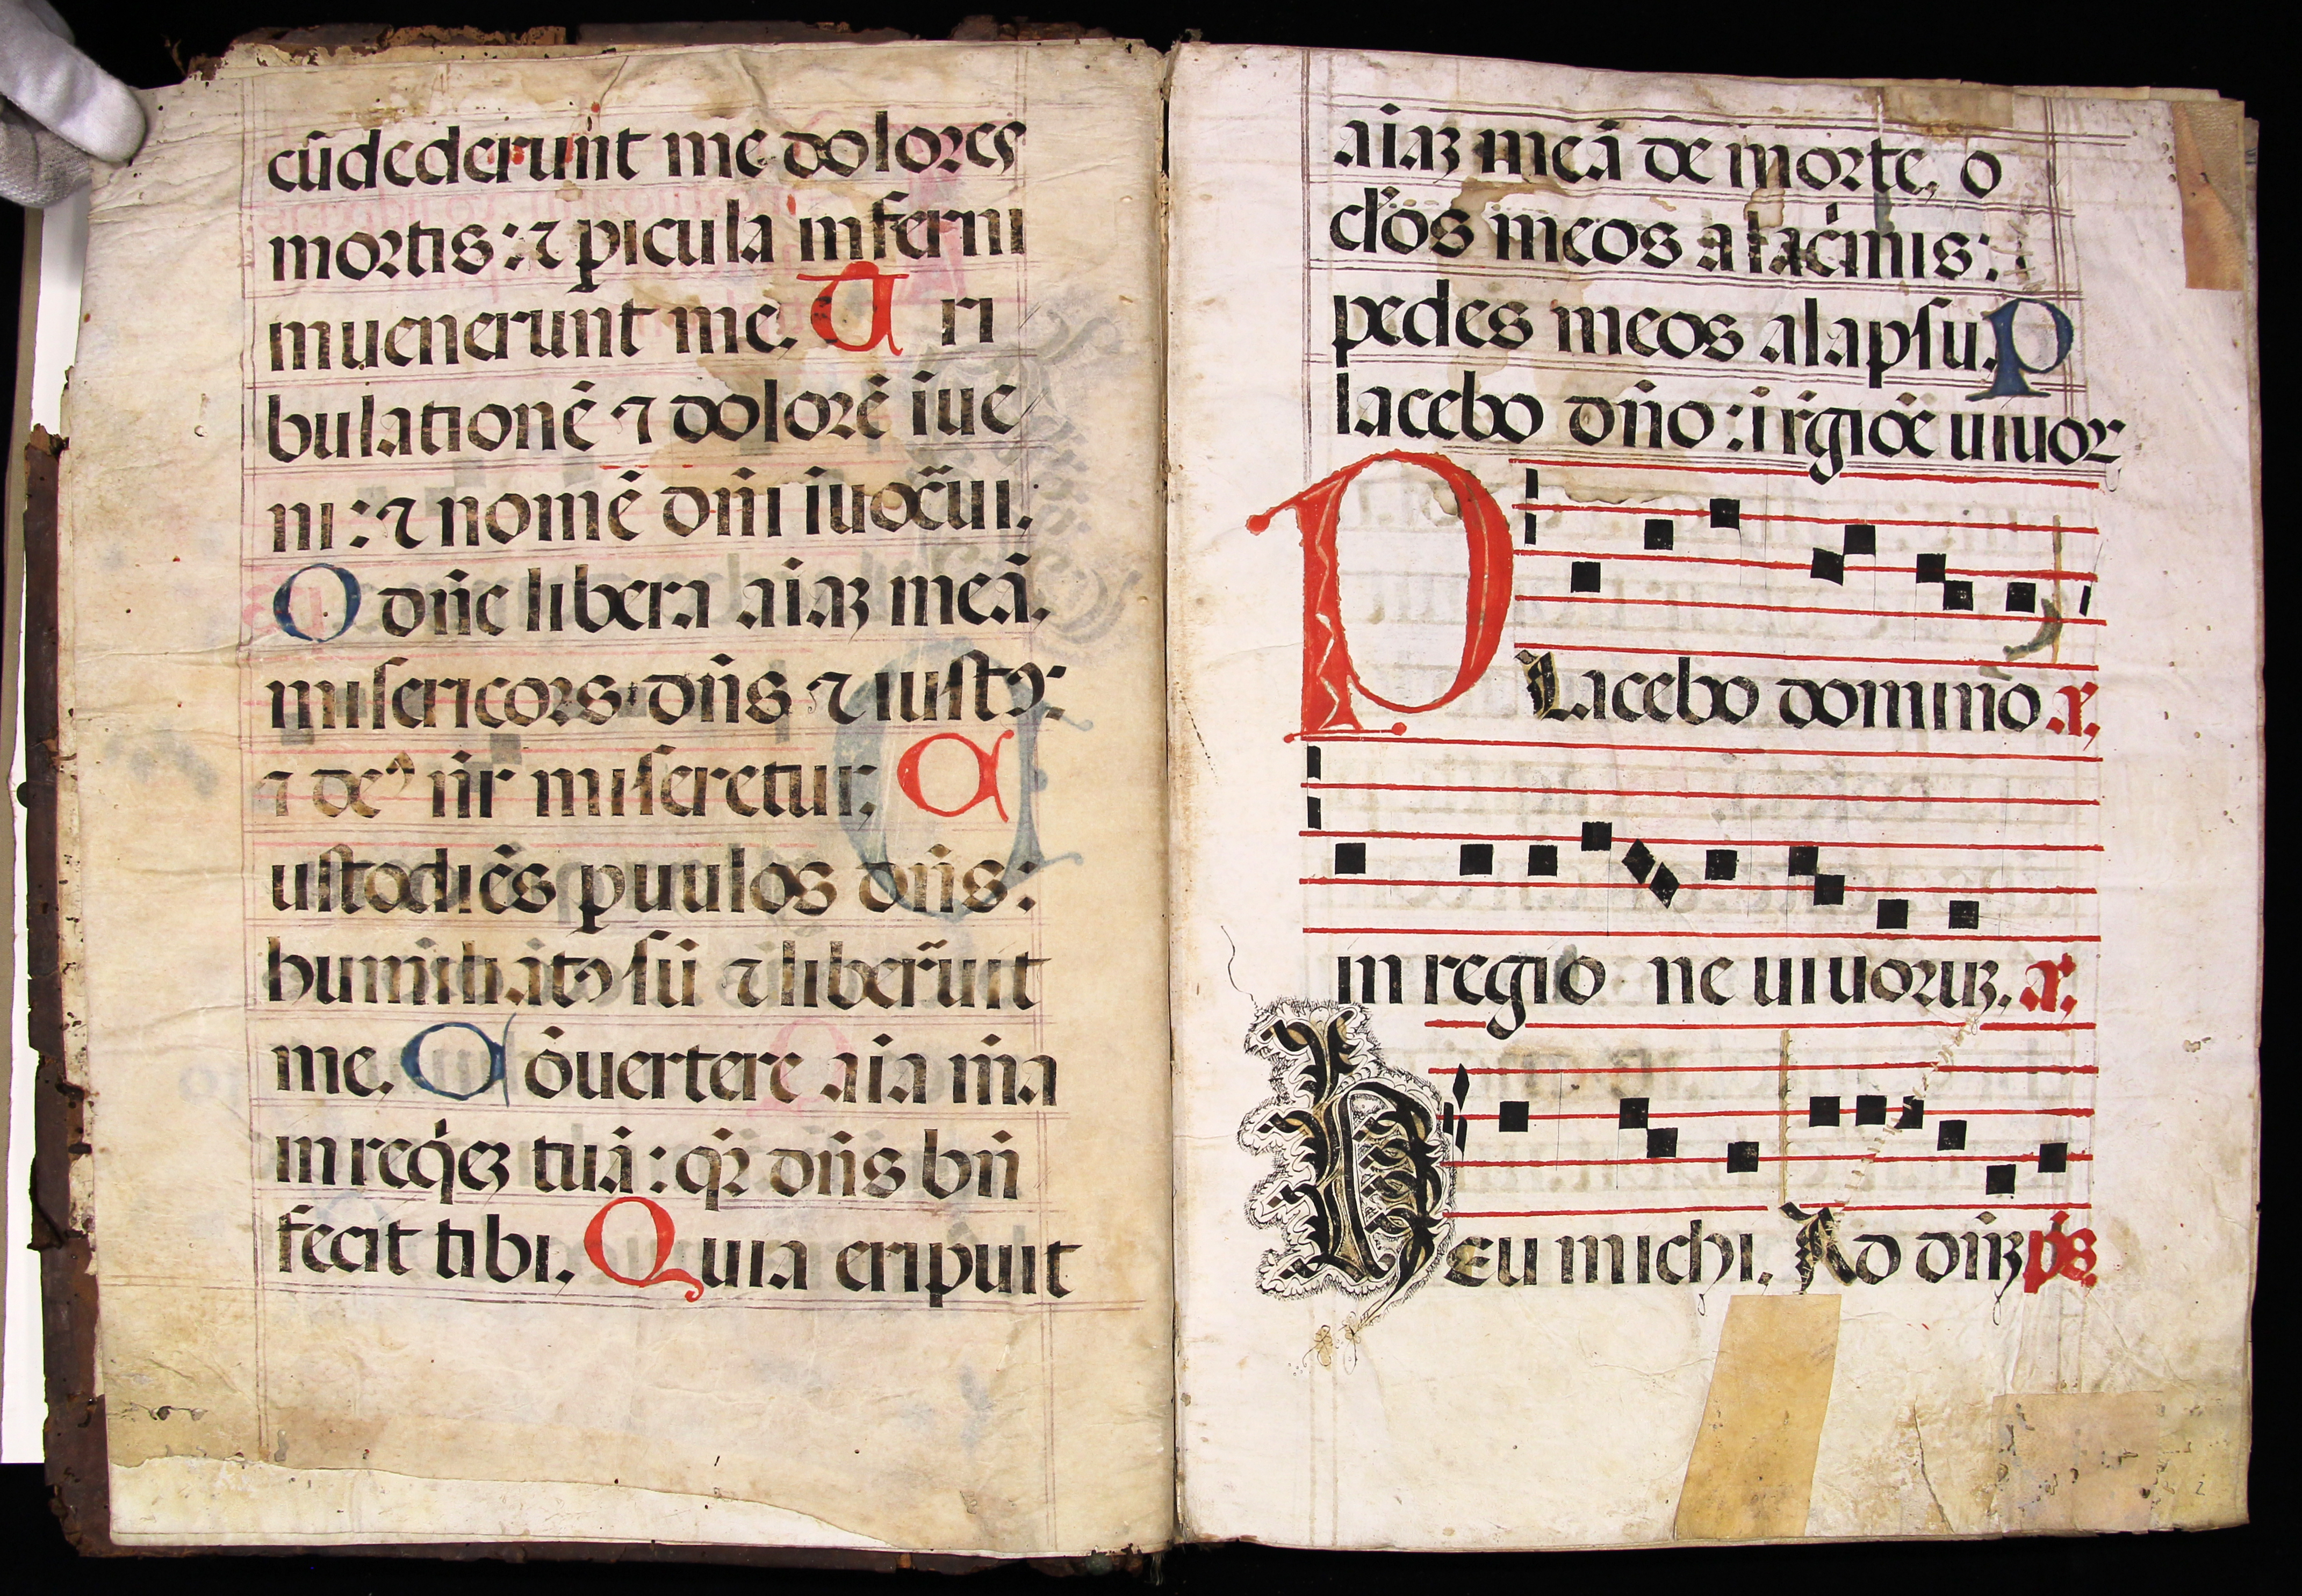 cūdederunt me dolores
mortis: ⁊ ꝑicula inferni
inuenerunt me. T ri
bulationē ⁊ dolorē īue
ni: ⁊ nomē dn̄i īuocāui.
O dn̄e libera aiaꝫ meā.
misericors dn̄s ⁊ iustꝰ:
⁊ deꝰ nr̄ miseretur. C
ustodiēs ꝑuulos dn̄s:
humiliatꝰ sū ⁊ liber̄uit
me. C ōuertere aīa m̄a
in reqͥeꝫ tuā: qꝛ dn̄s bn̄
fecit tibi. Quia eripuit
aiaꝫ meā de morte, o
cl̓os meos a lac̓mis:
pedes meos a lapsu. P
lacebo dn̄o: i rḡiōe uiuoꝝ
P Lacebo domino
in regio ne uiuoruꝫ.
H Eu michi. Ad dn̄ꝫ ps̄.
2